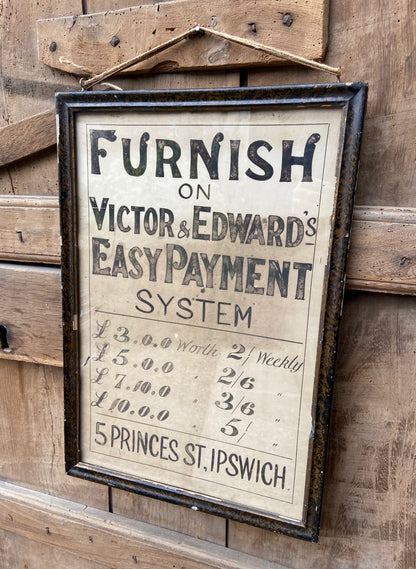 FURNISH
ON
VICTOR & EDWARD'S
EASY PAYMENT
SYSTEM
£3.0.0 Worth 2/ Weekly
£5.0.0 " 2/6 "
£7.10.0 " 3/6 "
£10.0.0 " 5/ "
5 PRINCES ST, IPSWICH.